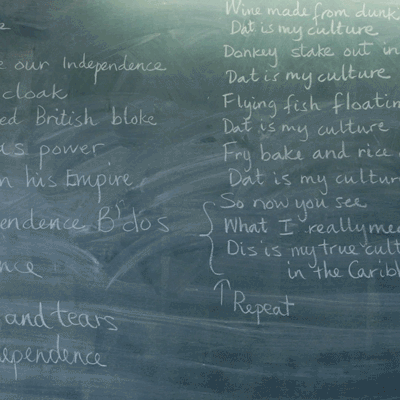 e our Independence
cloak
ed British bloke
as power
n his Empire
endence B'dos
nce
and tears
ependence
Wine made from dunk
Dat is my culture
Donkey stake out in
Dat is my culture
Flying fish floatin
Dat is my culture
Fry bake and rice
Dat is my cultur
So now you see
What I really mea
Dis is my true cult
in the Caribb
Repeat